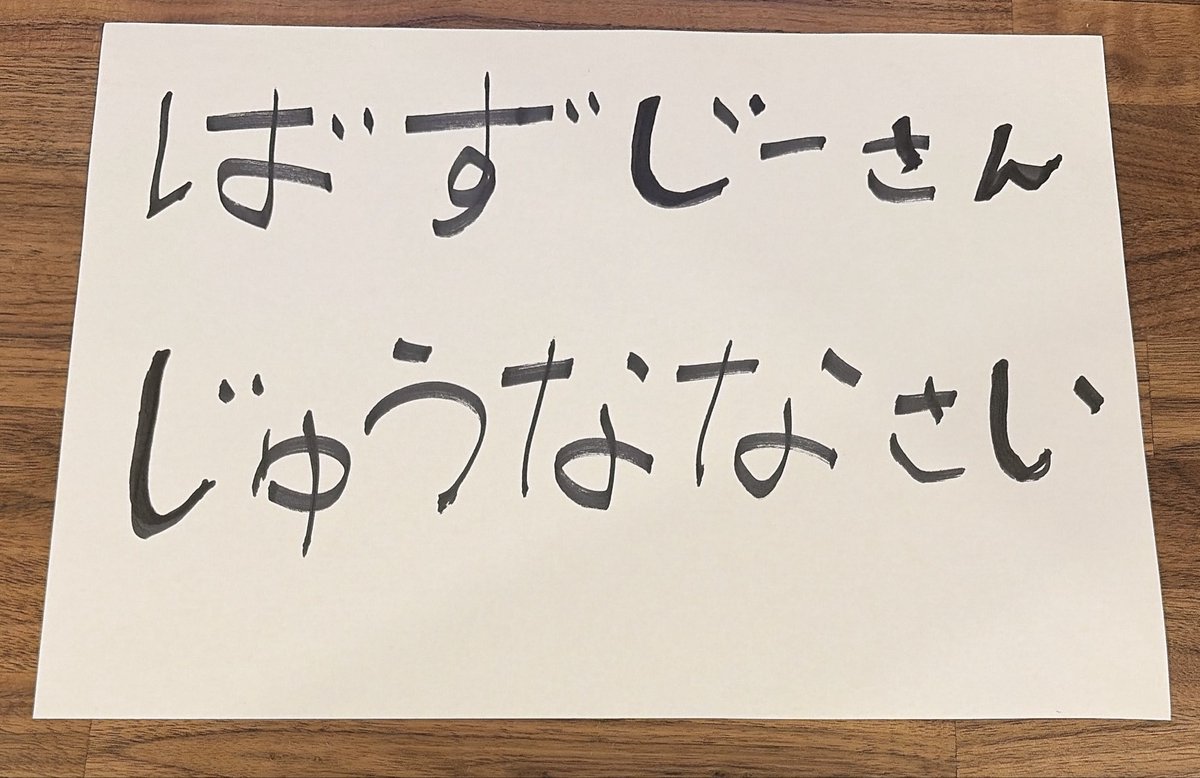 ばずじーさん
じゅうななさい